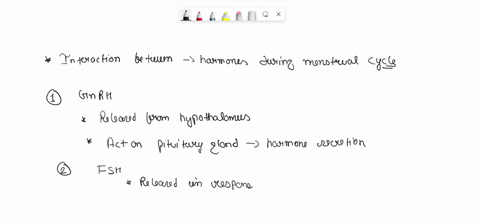 * Interaction between → hormones during menstrual cycle
① GnRH
* Released from hypothalomus
* Act on pituitary gland → hormone secretion
② FSH
* Released in respone